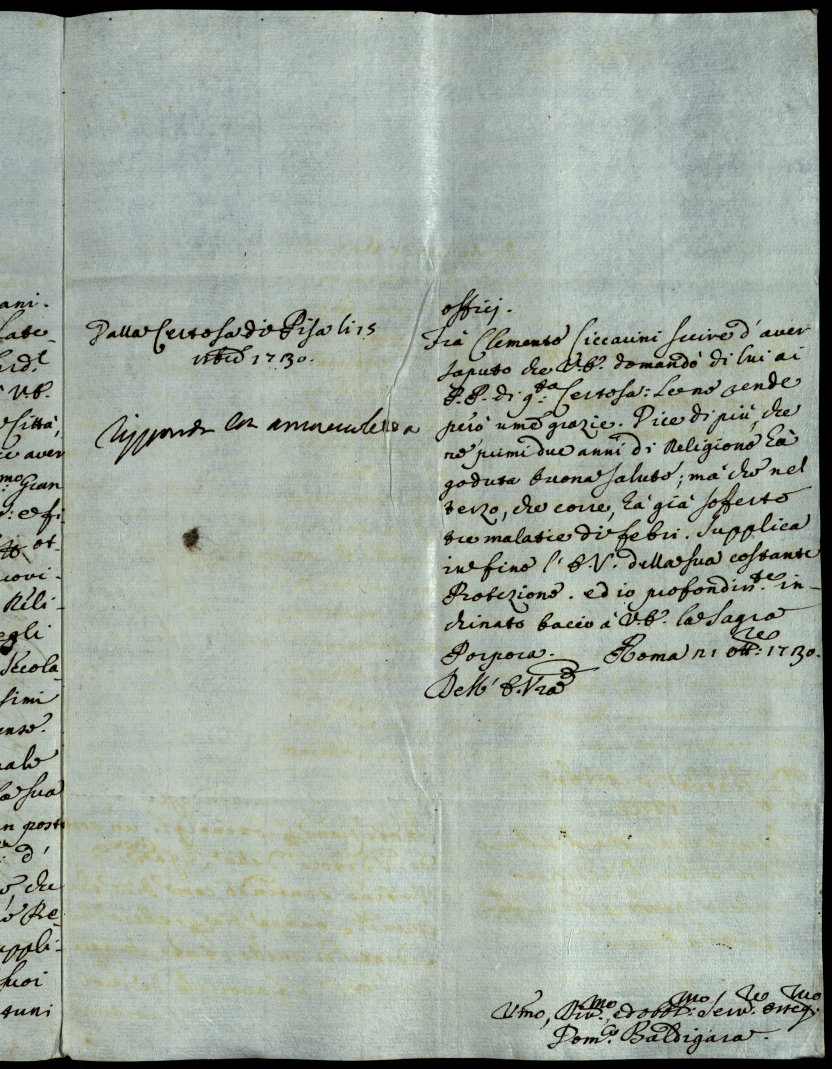 ani.
late-
ard.l
V.E.
Città,
ce aver
mo Gran
: e fi-
ot-
uovi-
Reli-
egli
Secola-
simi
ense.
uale
la sua
n post
d'
che
Re-
uppli-
suoi
tuni
Dalla Certosa di Pisa li 15
9bre 1730.
Risponder con amorevolezza
officj.
Frà Clemente Ciccarini scrive d'aver
saputo che V.E. domandò di lui ai
P.P. di q.sta Certosa: Le ne rende
però ume grazie. Dice di più, che
ne' primi due anni di Religione hà
goduta buona salute; mà che nel
terzo, che corre, hà già sofferto
tre malatie di febri. Supplica
in fine l'E.V. della sua costante
Protezione. ed io profondam.te in-
chinato baccio à V.E. la Sagra
Porpora. Roma 21 ott.re 1730.
Dell'E.Vra
Vmo, Div.mo, ed obb.mo Serv.re osseq.mo
Dom.co Baldigara.